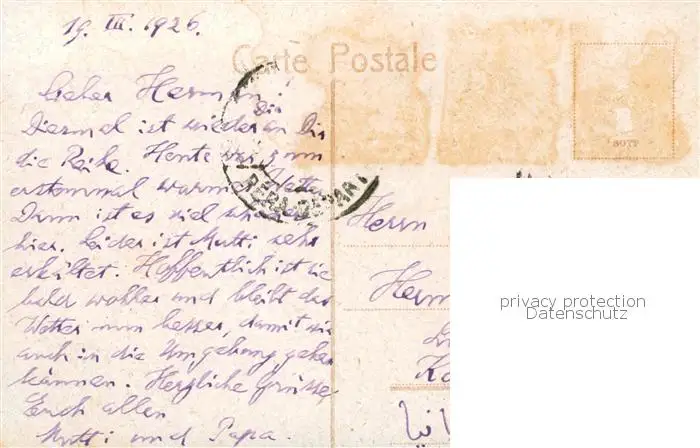 19. III. 1926.
Carte Postale
Lieber Hermann!
Diesmal ist wieder an Dir
die Reihe. Heute war zum
erstenmal warm Wetter
Dann ist es viel schöner
hier. Leider ist Mutti sehr
erkältet. Hoffentlich ist sie
bald wohler und bleibt das
Wetter nun besser, damit wir
auch in die Umgebung gehen
können. Herzliche Grüsse
Euch allen
Mutti und Papa.
PERA-DEPART
Herrn
Herm
privacy protection
Datenschutz